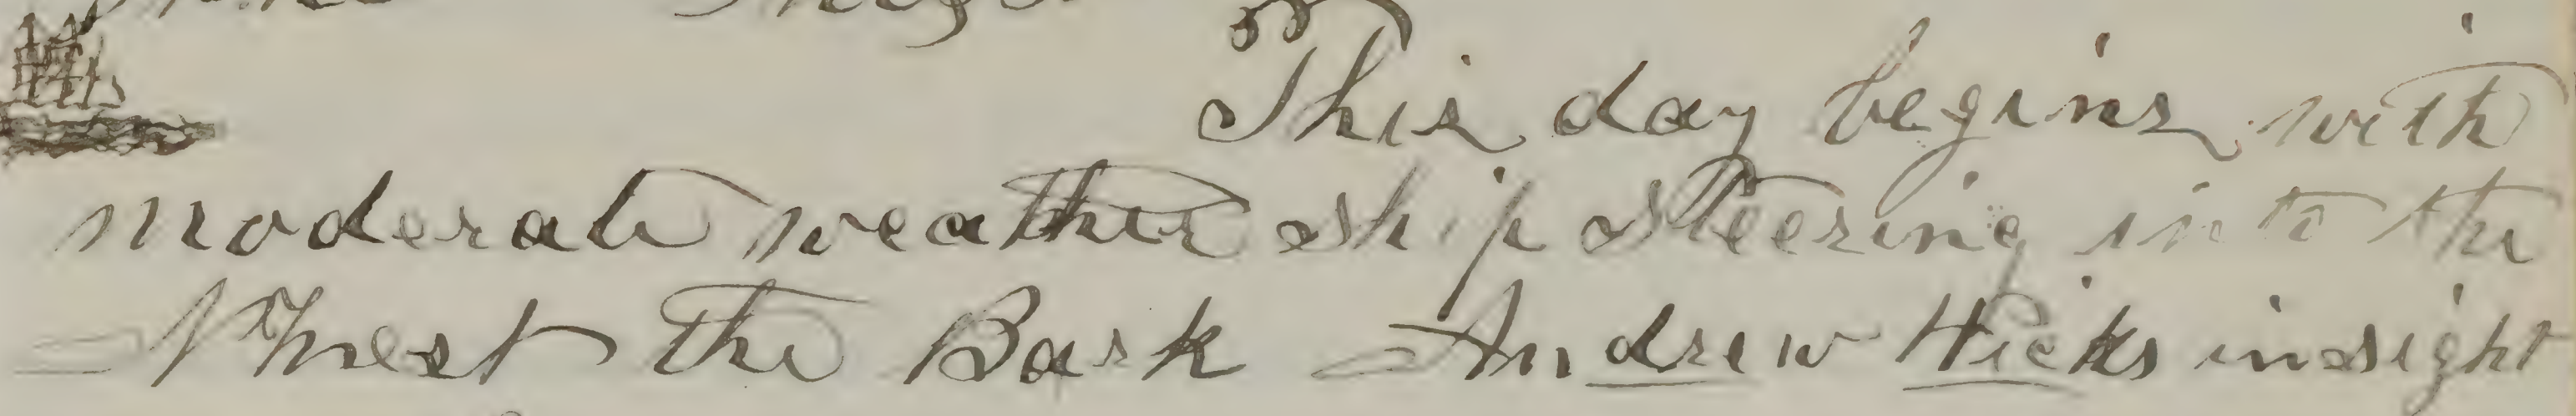 This day begins with
moderate weather ship steering into the
N West the Bark Andrew Hicks in sight